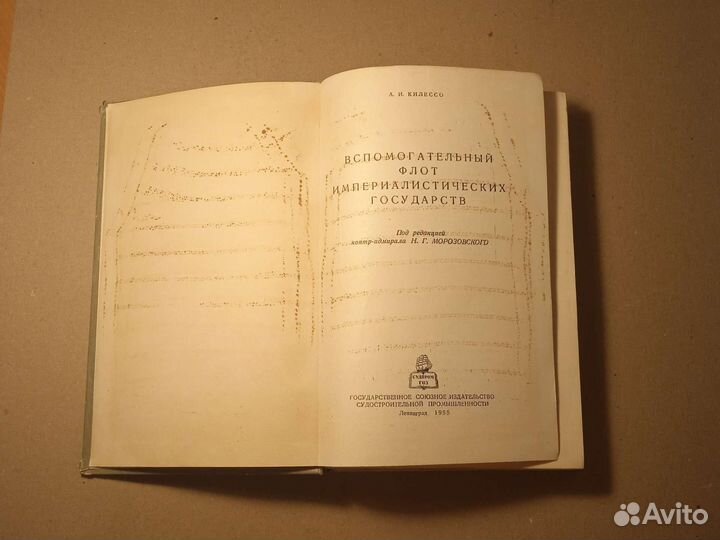 А. И. КИЛЕССО
ВСПОМОГАТЕЛЬНЫЙ
ФЛОТ
ИМПЕРИАЛИСТИЧЕСКИХ
ГОСУДАРСТВ
Под редакцией
контр-адмирала Н. Г. МОРОЗОВСКОГО
СУДПРОМ
ГИЗ
ГОСУДАРСТВЕННОЕ СОЮЗНОЕ ИЗДАТЕЛЬСТВО
СУДОСТРОИТЕЛЬНОЙ ПРОМЫШЛЕННОСТИ
Ленинград 1955
Avito